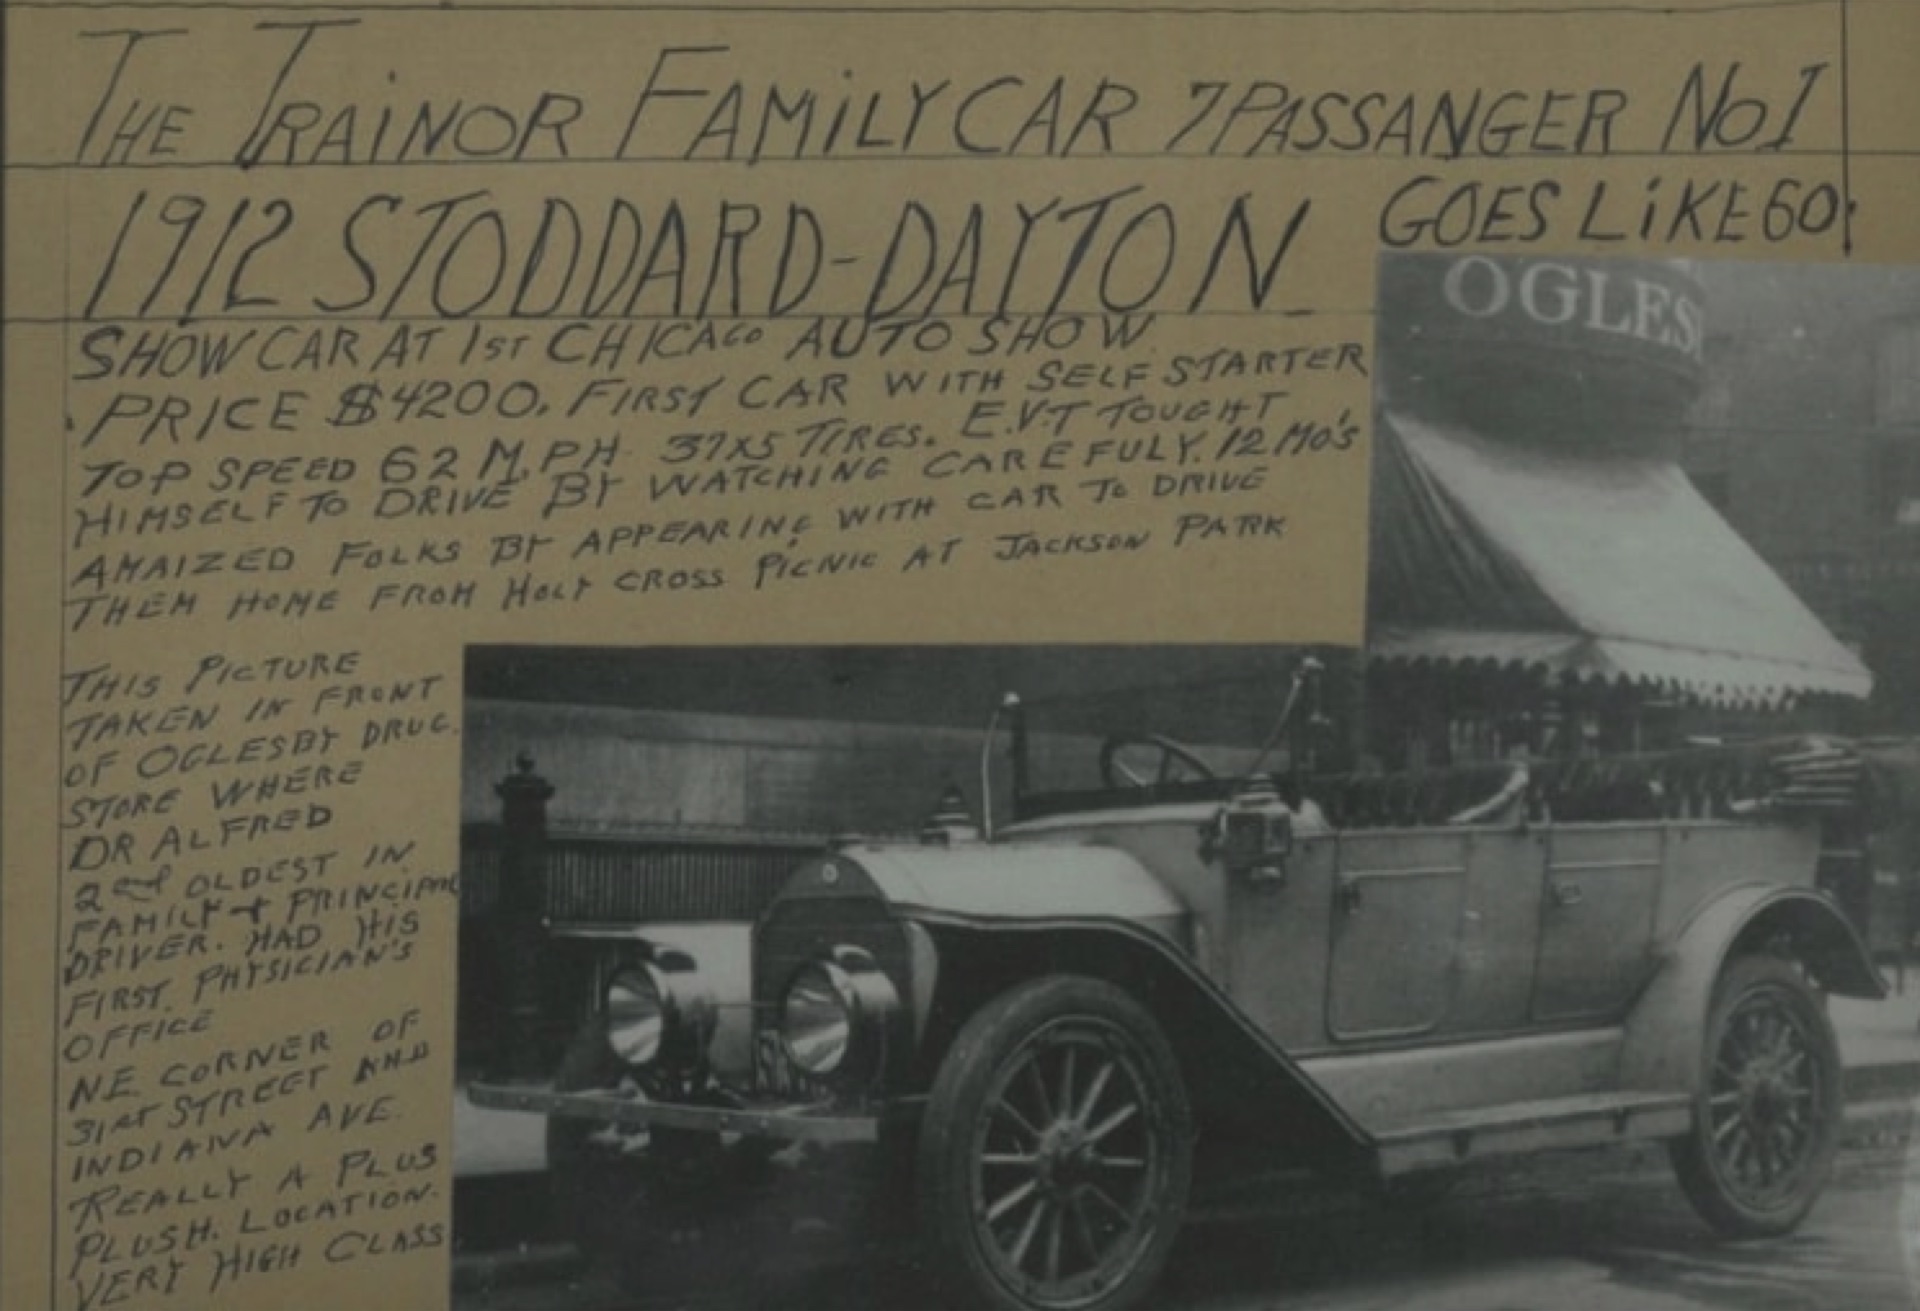 THE TRAINOR FAMILY CAR 7 PASSANGER NO I
1912 STODDARD-DAYTON
GOES LIKE 60
SHOW CAR AT 1ST CHICAGO AUTO SHOW
PRICE $4200. FIRST CAR WITH SELF STARTER
TOP SPEED 62 M.P.H. 37X5 TIRES. E.V.T TOUGHT
HIMSELF TO DRIVE BY WATCHING CAREFULY. 12 MO'S
AMAIZED FOLKS BY APPEARING WITH CAR TO DRIVE
THEM HOME FROM HOLY CROSS PICNIC AT JACKSON PARK
OGLES
THIS PICTURE
TAKEN IN FRONT
OF OGLESBY DRUG.
STORE WHERE
DR ALFRED
2nd OLDEST IN
FAMILY + PRINCIPAL
DRIVER. HAD HIS
FIRST. PHYSICIAN'S
OFFICE
N.E. CORNER OF
31ST STREET AND
INDIANA AVE.
REALLY A PLUS
PLUSH. LOCATION.
VERY HIGH CLASS